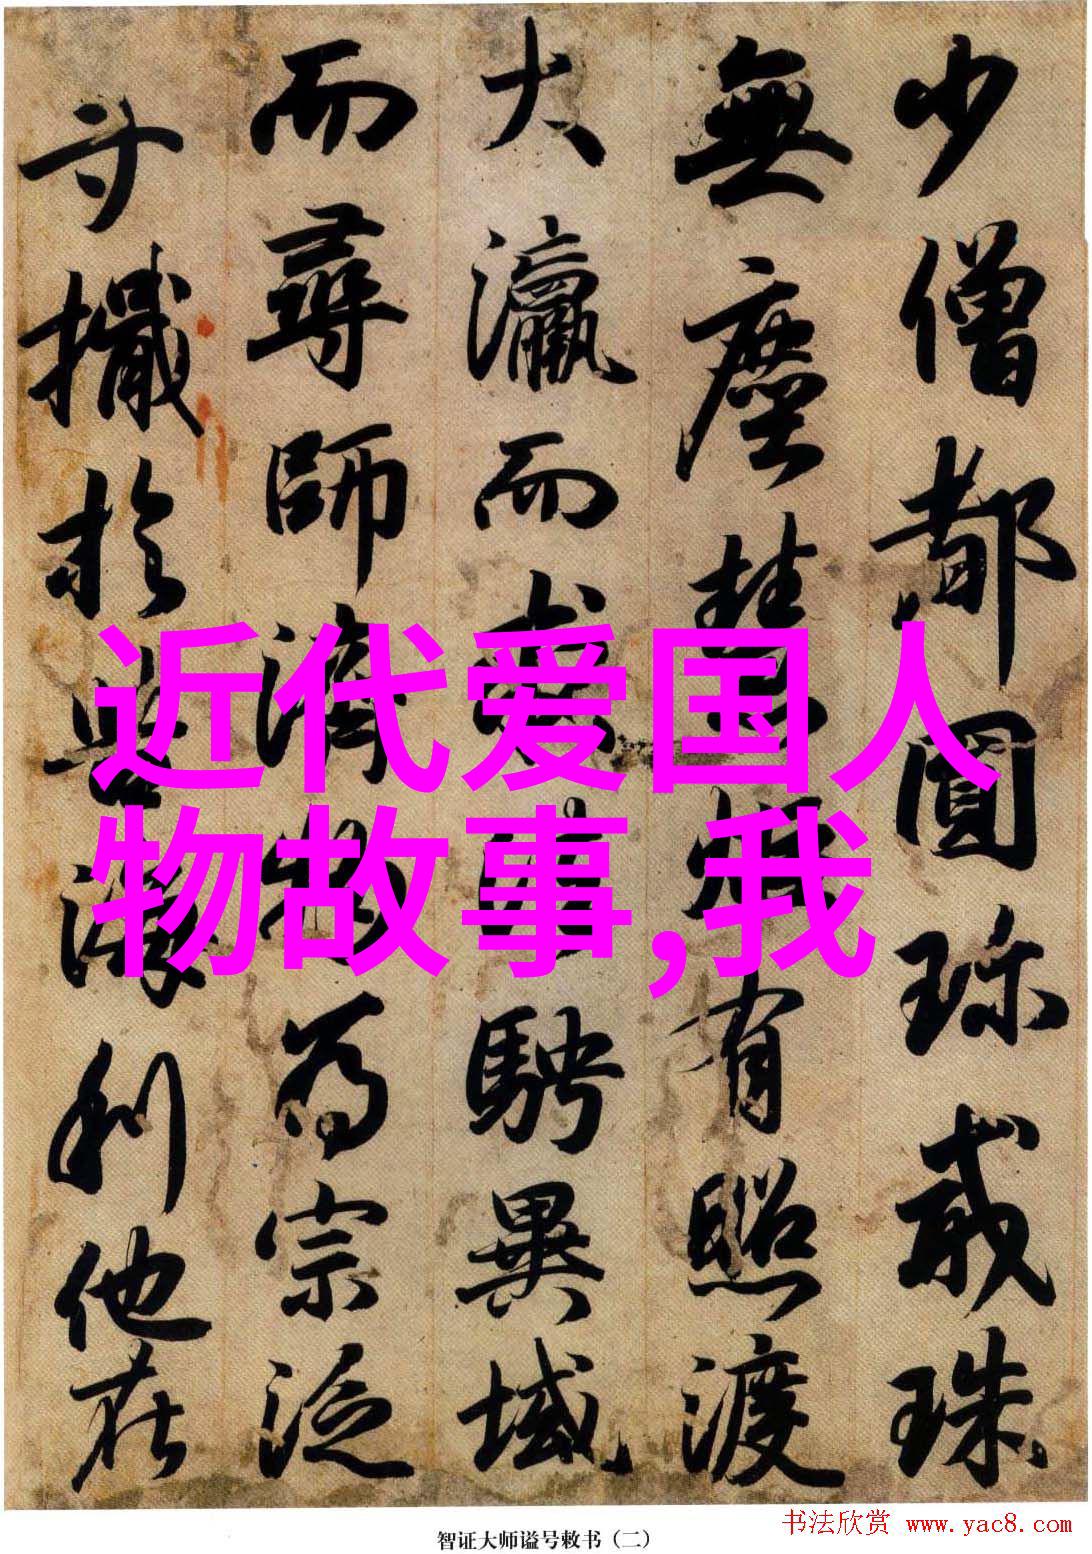 少僧都圓珎戒珠
無塵慧炬有照渡
大瀛而騁異域
而尋師濟物為宗泛
寸於利他在
近代爱国人
物故事,我
智证大师谥号敕书（二）
书法欣赏 www.yac8.com